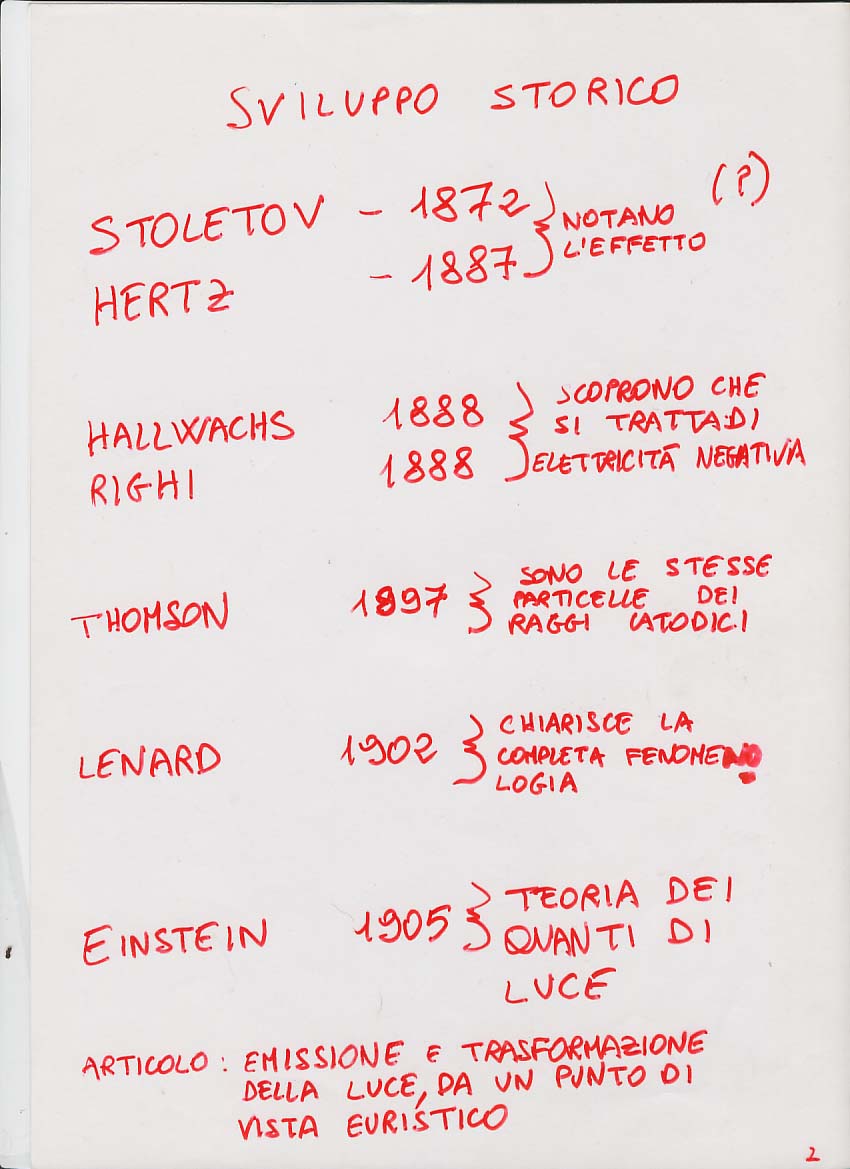 SVILUPPO STORICO
STOLETOV - 1872 } NOTANO (?)
HERTZ - 1887 } L'EFFETTO
HALLWACHS 1888 } SCOPRONO CHE
SI TRATTA DI
RIGHI 1888 } ELETTRICITÀ NEGATIVA
THOMSON 1897 } SONO LE STESSE
PARTICELLE DEI
RAGGI CATODICI
LENARD 1902 } CHIARISCE LA
COMPLETA FENOMENO
LOGIA
EINSTEIN 1905 } TEORIA DEI
QUANTI DI
LUCE
ARTICOLO : EMISSIONE E TRASFORMAZIONE
DELLA LUCE, DA UN PUNTO DI
VISTA EURISTICO
2